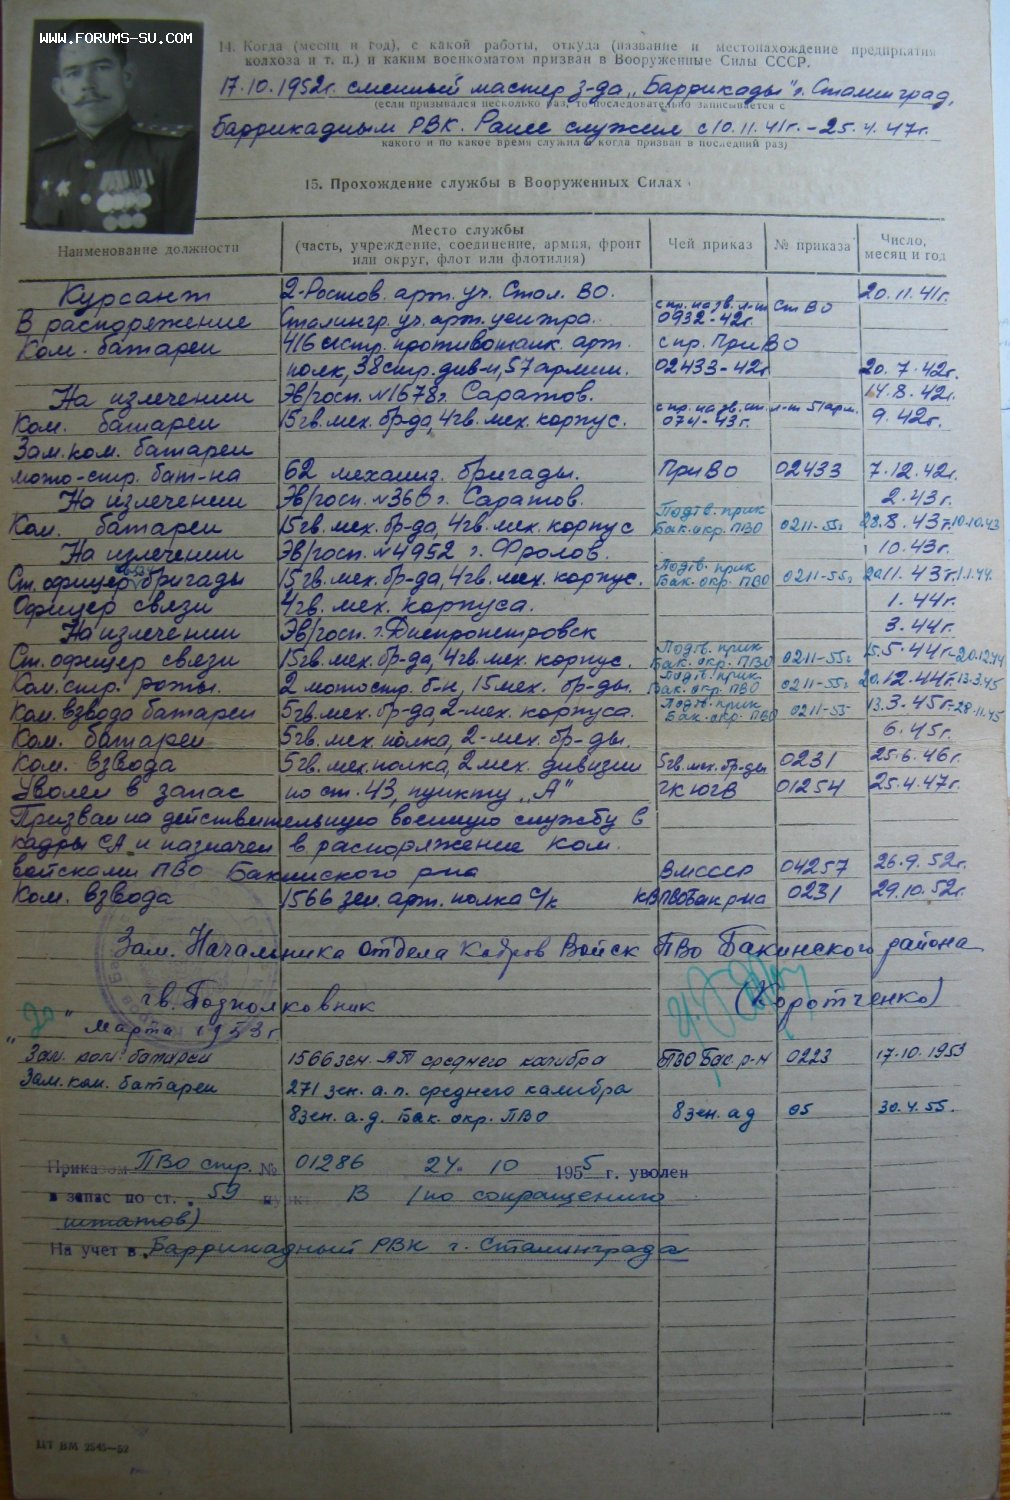 WWW.FORUMS-SU.COM
14. Когда (месяц и год), с какой работы, откуда (название и местонахождение предприятия
колхоза и т. п.) и каким военкоматом призван в Вооруженные Силы СССР.
17.10.1952г. сменный мастер з-да „Баррикады" г. Сталинград,
(если призывался несколько раз, то последовательно записывается с
баррикадным РВК. Ранее служил с 10.11.41г. - 25.4.47г.
какого и по какое время служил и когда призван в последний раз)
15. Прохождение службы в Вооруженных Силах
Наименование должности Место службы (часть, учреждение, соединение, армия, фронт или округ, флот или флотилия) Чей приказ № приказа Число, месяц и год
Курсант 2-Ростов. арт. уч. Стал. ВО. 20.11.41г.
В распоряжение Сталингр. уч. арт. центра. с пр. п. зв. л-т СтВО 0932-42г.
Ком. батареи 416 истр. противотанк. арт. с пр. ПриВО
полк, 38 стр. див-и, 57 армии. 02433-42г 20.7.42г.
На излечении Эв/госп. №1678 г. Саратов. 14.8.42г.
Ком. батареи 15 гв. мех. бр-да, 4 гв. мех. корпус. с пр. п. зв. ст. л-т 51 арм. 074-43г. 9.42г.
Зам. ком. батареи
мото-стр. бат-на 62 механиз. бригады. ПриВО 02433 7.12.42г.
На излечении Эв/госп. №360 г. Саратов. 2.43г.
Ком. батареи 15 гв. мех. бр-да, 4 гв. мех. корпус Подтв. прик Бак. окр. ПВО 0211-55г 28.8.43г.-10.10.43
На излечении Эв/госп. №4952 г. Фролов. 10.43г.
Ст. офицер связи бригады 15 гв. мех. бр-да, 4 гв. мех. корпус. Подтв. прик Бак. окр. ПВО 0211-55г 20.11.43г-1.1.44.
Офицер связи 4 гв. мех. корпуса. 1.44г.
На излечении Эв/госп. г. Днепропетровск 3.44г.
Ст. офицер связи 15 гв. мех. бр-да, 4 гв. мех. корпус. Подтв. прик Бак. окр. ПВО 0211-55г 15.5.44г-20.12.44
Ком. стр. роты. 2 мотостр. б-н, 15 мех. бр-ды. Подтв. прик Бак. окр. ПВО 0211-55г 20.12.44г.-13.3.45
Ком. взвода батареи 5 гв. мех. бр-да, 2-мех. корпуса. Подтв. прик Бак. окр. ПВО 0211-55 13.3.45г-28.11.45
Ком. батареи 5 гв. мех. полка, 2-мех. бр-ды. 6.45г.
Ком. взвода 5 гв. мех. полка, 2 мех. дивизии 5 гв. мех. бр-ды 0231 25.6.46г.
Уволен в запас по ст. 43, пункту „А" ГК ЮГВ 01254 25.4.47г.
Призван на действительную военную службу в
кадры СА и назначен в распоряжение ком.
войсками ПВО Бакинского р-на ВМСССР 04257 26.9.52г.
Ком. взвода 1566 зен. арт. полка С/к КВ ПВО Бак р-на 0231 29.10.52г.
Зам. Начальника Отдела Кадров Войск ПВО Бакинского района
гв. Подполковник (Коротченко)
" Марта 1953г.
Зам. ком. батареи 1566 зен. АП среднего калибра ПВО Бак. р-н 0223 17.10.1953
Зам. ком. батареи 271 зен. а.п. среднего калибра
8 зен. а.д. Бак. окр. ПВО 8 зен. ад 05 30.4.55.
Приказом ПВО стр. № 01286 24. 10 1955 г. уволен
в запас по ст. 59 пункт В (по сокращению
штатов)
На учет в Баррикадный РВК г. Сталинграда